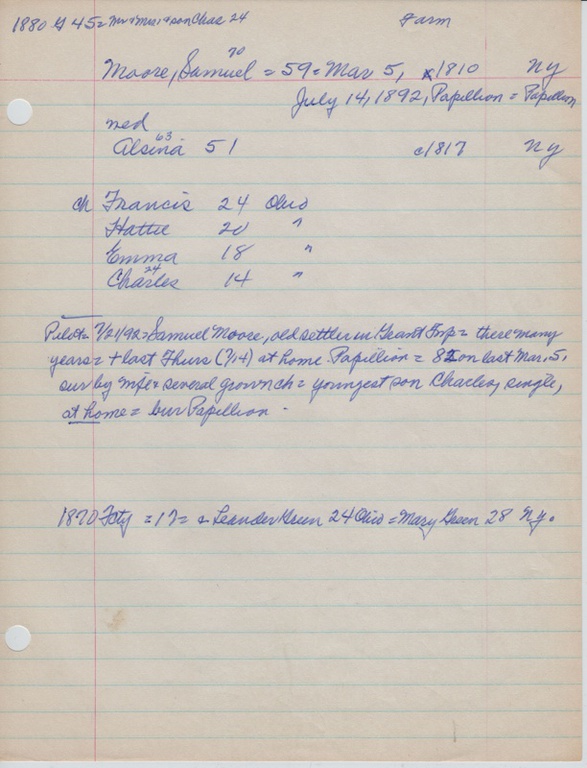 1880 Gt 45 = Mr + Mrs, + son Chas 24 Farm
70
Moore, Samuel = 59 = Mar 5, c1810 Ny
July 14, 1892, Papillion = Papillion
med
63
Alsina 51 c1817 Ny
ch Francis 24 Ohio
Hattie 20 "
Emma 18 "
24
Charles 14 "
Pilot = 7/21/92 = Samuel Moore, old settler in Grant Twp = there many
years = + last Thurs (7/14) at home Papillion = 82 on last Mar. 5,
sur by wife + several grown ch = youngest son Charles, single,
at home = bur Papillion.
1870 Fcty = 17 = + Leander Green 24 Ohio = Mary Green 28 Ny.